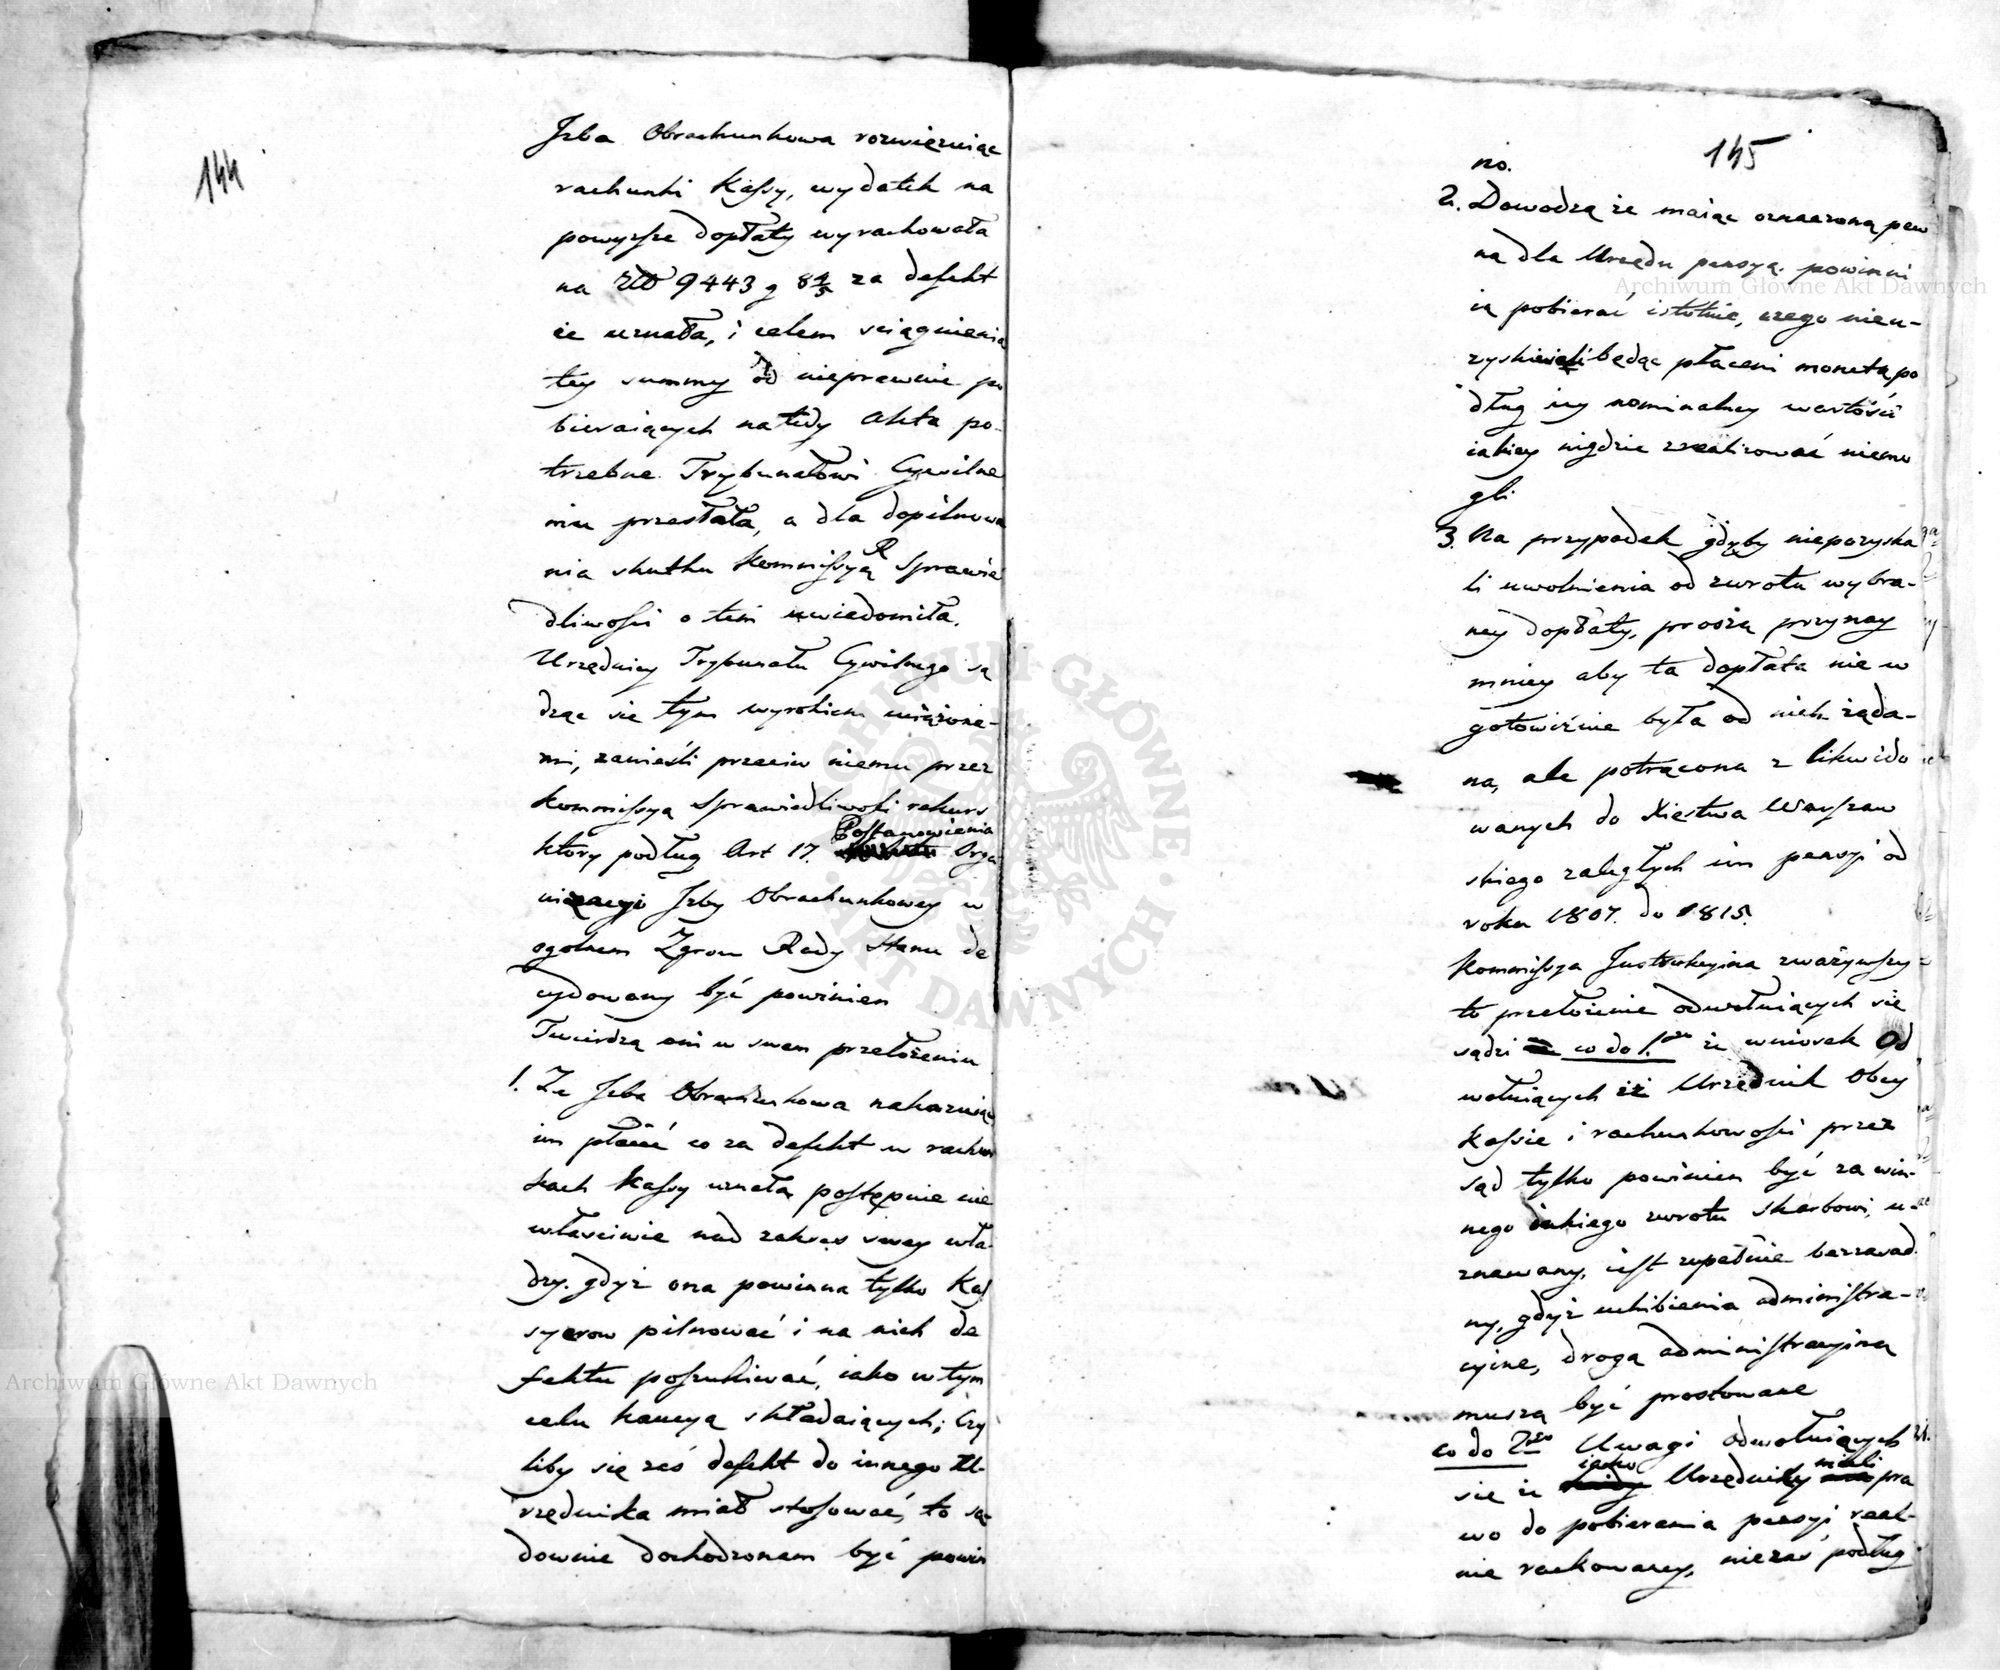 144
Jzba Obrachunkowa rozwięzuiąc
rachunki Kassy, wydatek na
powyższe dopłaty wyrachowała
na 9443 g 8 4/5 za defekt
ie uznała, i celem sciągnienia
tey summy od nieprawnie po
bieraiących na tedy Akta po-
trzebne Trybunałowi Cywilne
mu przesłała, a dla dopilnowa
nia skutku Kommissyą R Sprawie
dliwości o tem uwiadomiła.
Urzędnicy Trybunału Cywilnego są
dząc się tym wyrokiem uciążone-
mi, zanieśli przeciw niemu przez
Kommissyą Sprawiedliwości rekurs
który podług Art 17. Postanowienia Orga
nizacyi Jzby Obrachunkowey w
ogolnem Zgrom Rady Stanu de
cydowany być powinien
Twierdzą oni w swem przełożeniu
1. Ze Jzba Obrachunkowa nakazuiąc
im płacić co za defekt w rachun
kach Kassy uznała postępuie nie
własciwie nad zakres swey wła-
dzy. gdyż ona powinna tylko Kas
syerow pilnować i na nich de
fektu poszukiwać, iako w tym
celu kaucyą składaiących; Czy
liby się zaś defekt do innego U-
rzędnika miał stosować, to są-
downie dochodzonem być powin
145
no.
2. Dowodzą że maiąc oznaczoną pew
ną dla Urzędu pensyą. powinni
ią pobierać istotnie, czego nieu-
zyskiwali będąc płaceni monetą po
dług iey nominalney wartości
iakiey nigdzie zrealizować niemo
gli
3. Na przypadek gdyby niepozyska
li uwolnienia od zwrotu wybra-
ney dopłaty, proszą przynay
mniey aby ta dopłata nie w
gotowiźnie była od nich żąda-
na, ale potrącona z likwido
wanych do Xięstwa Warszaw
skiego zaległych im pensyi od
roku 1807. do 1815.
Kommissya Jnstrukcyina zważywszy
to przełożenie odwołuiących się
sądzi co do 1go że wniosek Od
wołuiących iż Urzędnik obcy
kassie i rachunkowości przez
sąd tylko powinien być za win-
nego iakiego zwrotu Skarbowi, u-
znawany, iest zupełnie bezzasad
ny, gdyż uchibienia administra-
cyine, drogą administracyiną
muszą być prostowane
co do 2go Uwagi odwołuiących
się że iako Urzędnicy mieli pra
wo do pobierania pensyi real-
nie rachowaney, niezaś podług
Archiwum Główne Akt Dawnych
Archiwum Główne Akt Dawnych
ARCHIWUM GŁÓWNE AKT DAWNYCH